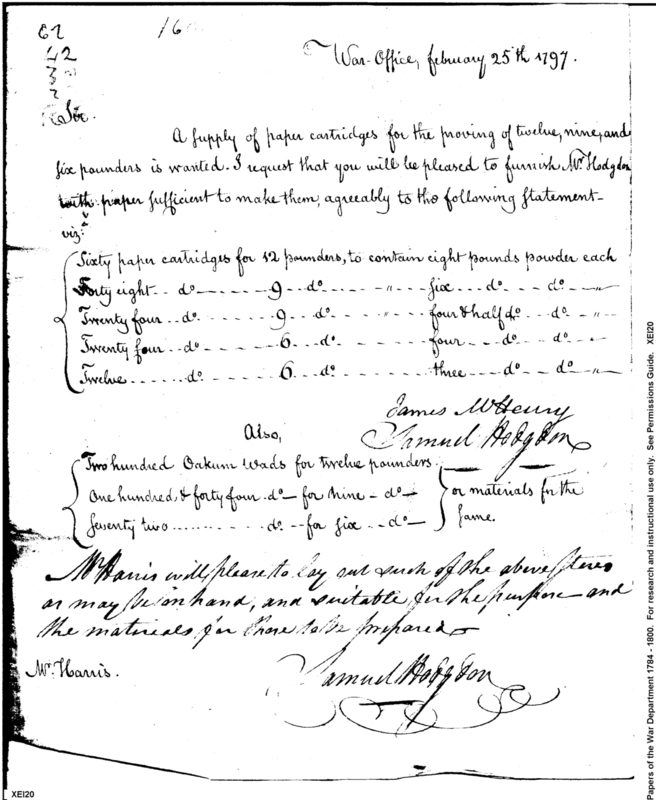 62 16
42
3
2
Sir.
War-Office, february 25th 1797.
A supply of paper cartridges for the proving of twelve, nine, and
six pounders is wanted. I request that you will be pleased to furnish Mr. Hodgdon
with paper sufficient to make them, agreeably to the following statement-
viz:
Sixty paper cartridges for 12 pounders, to contain eight pounds powder each
Forty eight .. do ------ 9 -- do ------ " -- six -- do -- do -- "
Twenty four .. do ------ 9 -- do ------ " -- four & half do -- do -- "
Twenty four .. do ------ 6 -- do ------ four -- do -- do -- "
Twelve ------ do ------ 6 -- do ------ three -- do -- do "
James McHenry
Samuel Hodgdon
Also,
Two hundred Oakum Wads for twelve pounders
One hundred & forty four do - for nine - do -
Seventy two .......... do -- for six -- do -
or materials for the
same.
Mr Harris will please to lay out such of the above stores
as may be in hand, and suitable for the purpose and
the materials for those to be prepared
Mr. Harris.
Samuel Hodgdon
XEI20
Papers of the War Department 1784 - 1800. For research and instructional use only. See Permissions Guide. XEI20